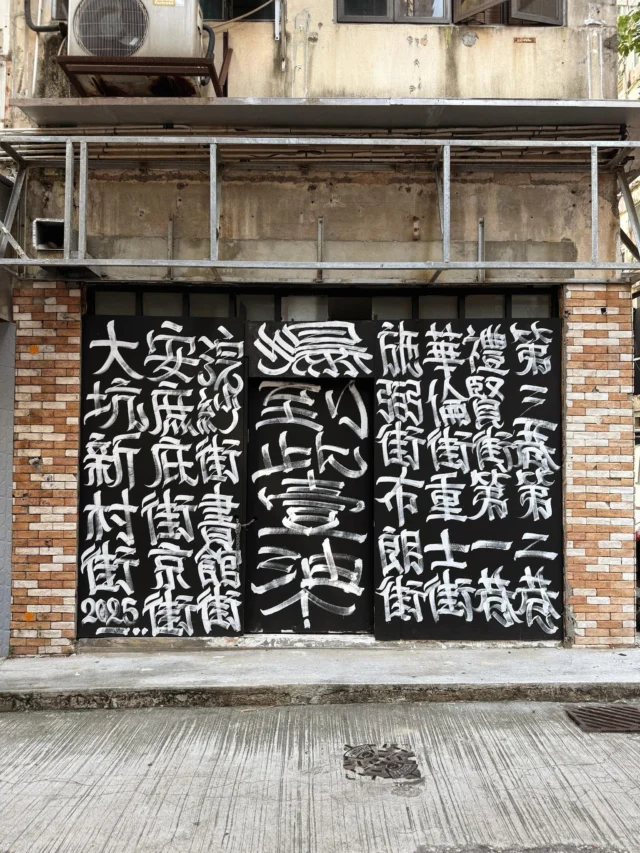 第三巷第二巷
禮賢街第一巷
華倫街重士街
施弼街布朗街
浣紗街書館街
安庶庇街京街
大坑新村街
2025